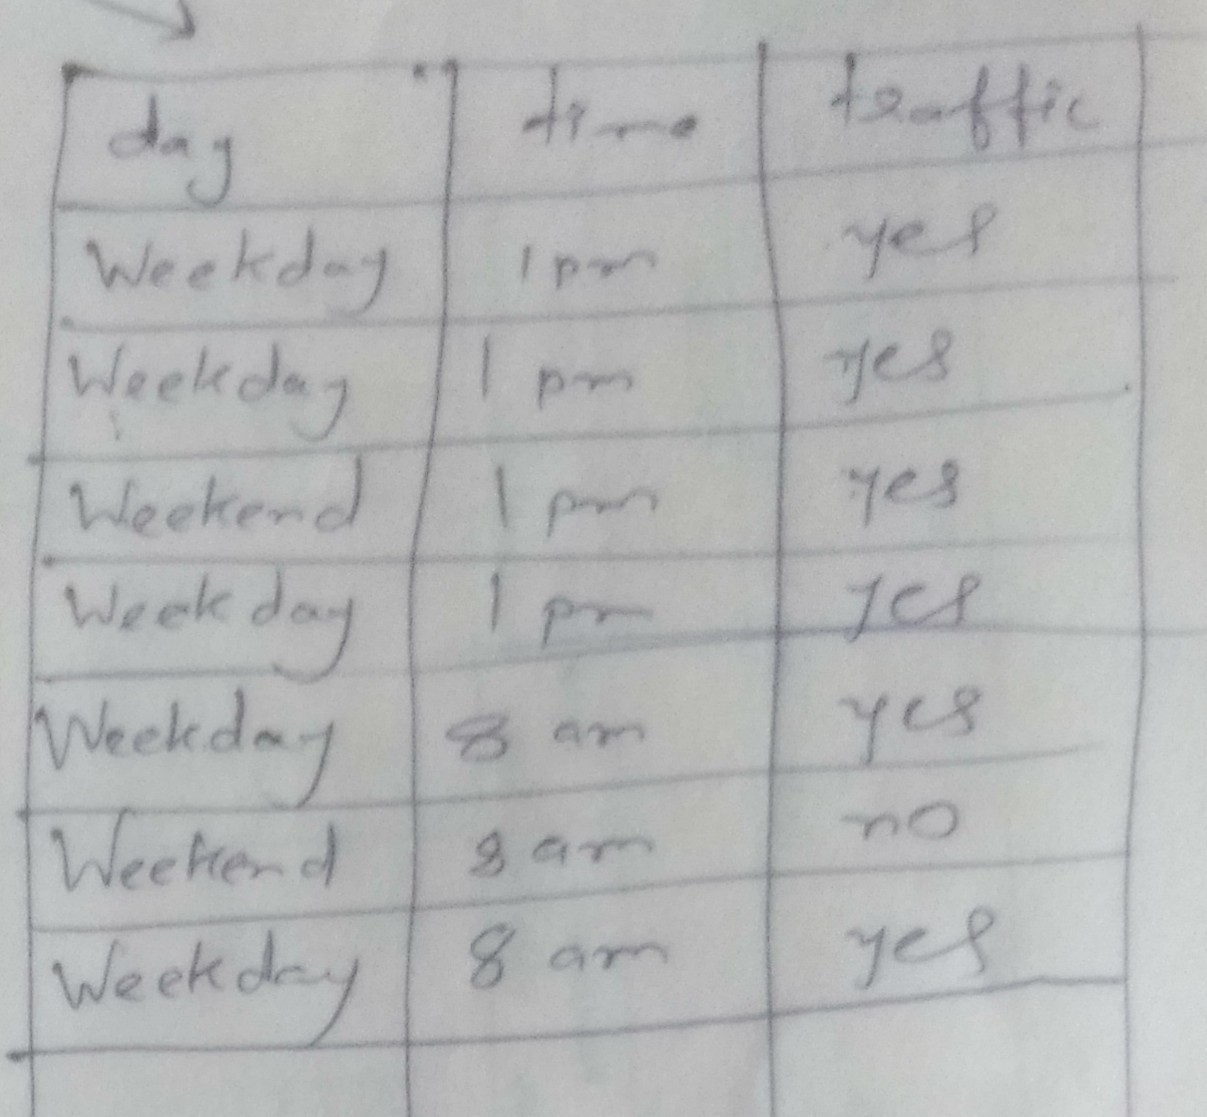 day time traffic
Weekday 1 pm yes
Weekday 1 pm yes
Weekend 1 pm yes
Weekday 1 pm yes
Weekday 8 am yes
Weekend 8 am no
Weekday 8 am yes